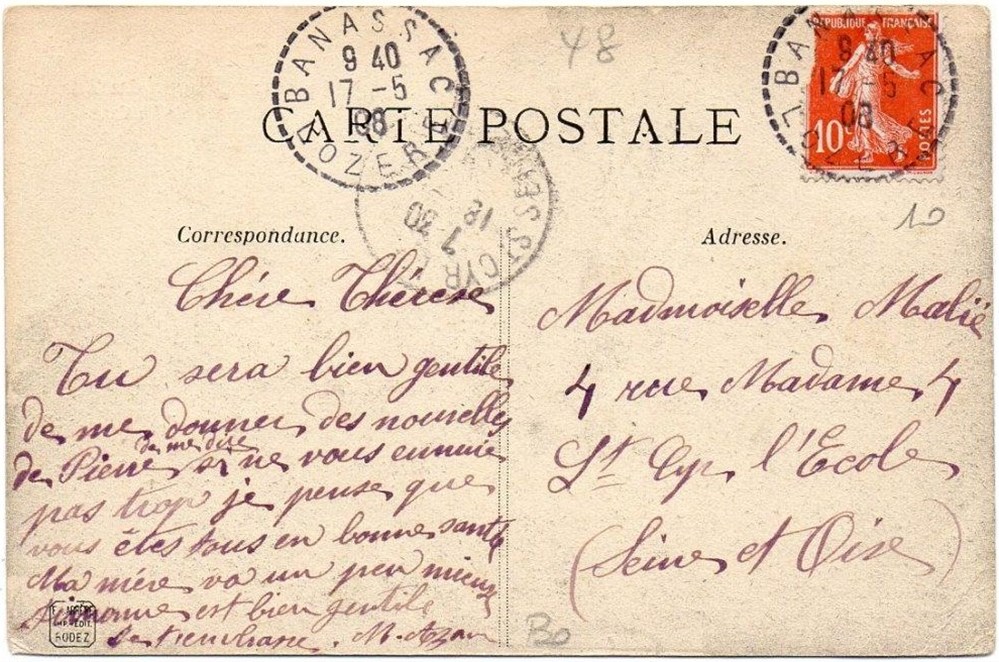 BANASSAC
9 40
17 -5
08
LOZERE
48
REPUBLIQUE FRANÇAISE
10c
POSTES
BANASSAC
9 40
17 -5
08
LOZERE
CARTE POSTALE
ST CYR
18
7 30
10
Correspondance.
Chére Thérese
Tu sera bien gentile
de me donner des nouvelles
de me dire
de Pierre si ne vous ennuie
pas trop je pense que
vous êtes tous en bonne santé
Ma mére va un peu mieux
est bien gentile
M. Azan
RODEZ
Adresse.
Madmoiselle Malié
4 rue Madame 4
St Cyr l'Ecole
(Seine et Oise)
B0